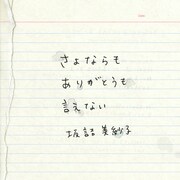 さよならも
ありがとうも
言えない
坂詰美紗子